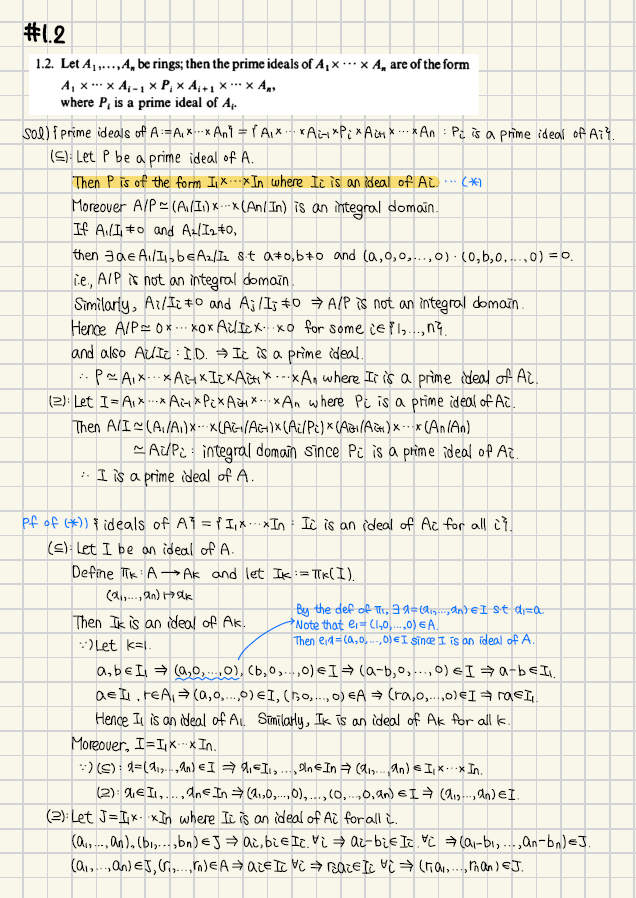 #1.2
1.2. Let A₁,..., Aₙ be rings; then the prime ideals of A₁ × ··· × Aₙ are of the form
A₁ × ··· × Aᵢ₋₁ × Pᵢ × Aᵢ₊₁ × ··· × Aₙ,
where Pᵢ is a prime ideal of Aᵢ.
sol) {prime ideals of A:=A₁×···×Aₙ} = {A₁×···×Aᵢ₋₁×Pᵢ×Aᵢ₊₁×···×Aₙ : Pᵢ is a prime ideal of Aᵢ}.
(⊆): Let P be a prime ideal of A.
Then P is of the form I₁×···×Iₙ where Iᵢ is an ideal of Aᵢ. ···(*)
Moreover A/P ≃ (A₁/I₁)×···×(Aₙ/Iₙ) is an integral domain.
If A₁/I₁≠0 and A₂/I₂≠0,
then ∃a∈A₁/I₁, b∈A₂/I₂ s.t a≠0, b≠0 and (a,0,0,...,0)·(0,b,0,...,0) = 0.
i.e., A/P is not an integral domain.
Similarly, Aᵢ/Iᵢ≠0 and Aⱼ/Iⱼ≠0 ⇒ A/P is not an integral domain.
Hence A/P ≃ 0×···×0×Aᵢ/Iᵢ×···×0 for some i∈{1,...,n}.
and also Aᵢ/Iᵢ : I.D. ⇒ Iᵢ is a prime ideal.
∴ P ≃ A₁×···×Aᵢ₋₁×Iᵢ×Aᵢ₊₁×···×Aₙ where Iᵢ is a prime ideal of Aᵢ.
(⊇): Let I=A₁×···×Aᵢ₋₁×Pᵢ×Aᵢ₊₁×···×Aₙ where Pᵢ is a prime ideal of Aᵢ.
Then A/I ≃ (A₁/A₁)×···×(Aᵢ₋₁/Aᵢ₋₁)×(Aᵢ/Pᵢ)×(Aᵢ₊₁/Aᵢ₊₁)×···×(Aₙ/Aₙ)
≃ Aᵢ/Pᵢ : integral domain since Pᵢ is a prime ideal of Aᵢ.
∴ I is a prime ideal of A.
Pf of (*)) {ideals of A} = {I₁×···×Iₙ : Iᵢ is an ideal of Aᵢ for all i}.
(⊆): Let I be an ideal of A.
Define πₖ: A → Aₖ and let Iₖ := πₖ(I).
(x₁,...,xₙ) ↦ xₖ
Then Iₖ is an ideal of Aₖ.
By the def of π₁, ∃x=(x₁,...,xₙ)∈I s.t x₁=a.
Note that e₁=(1,0,...,0)∈A.
Then e₁x=(a,0,...,0)∈I since I is an ideal of A.
∵) Let k=1.
a,b∈I₁ ⇒ (a,0,...,0), (b,0,...,0)∈I ⇒ (a-b,0,...,0)∈I ⇒ a-b∈I₁.
a∈I₁, r∈A₁ ⇒ (a,0,...,0)∈I, (r,0,...,0)∈A ⇒ (ra,0,...,0)∈I ⇒ ra∈I₁.
Hence I₁ is an ideal of A₁. Similarly, Iₖ is an ideal of Aₖ for all k.
Moreover, I=I₁×···×Iₙ.
∵) (⊆): x=(x₁,...,xₙ)∈I ⇒ x₁∈I₁,...,xₙ∈Iₙ ⇒ (x₁,...,xₙ)∈I₁×···×Iₙ.
(⊇): x₁∈I₁,...,xₙ∈Iₙ ⇒ (x₁,0,...,0),...,(0,...,0,xₙ)∈I ⇒ (x₁,...,xₙ)∈I.
(⊇): Let J=I₁×···×Iₙ where Iᵢ is an ideal of Aᵢ for all i.
(a₁,...,aₙ), (b₁,...,bₙ)∈J ⇒ aᵢ,bᵢ∈Iᵢ ∀i ⇒ aᵢ-bᵢ∈Iᵢ ∀i ⇒ (a₁-b₁,...,aₙ-bₙ)∈J.
(a₁,...,aₙ)∈J, (r₁,...,rₙ)∈A ⇒ aᵢ∈Iᵢ ∀i ⇒ rᵢaᵢ∈Iᵢ ∀i ⇒ (r₁a₁,...,rₙaₙ)∈J.